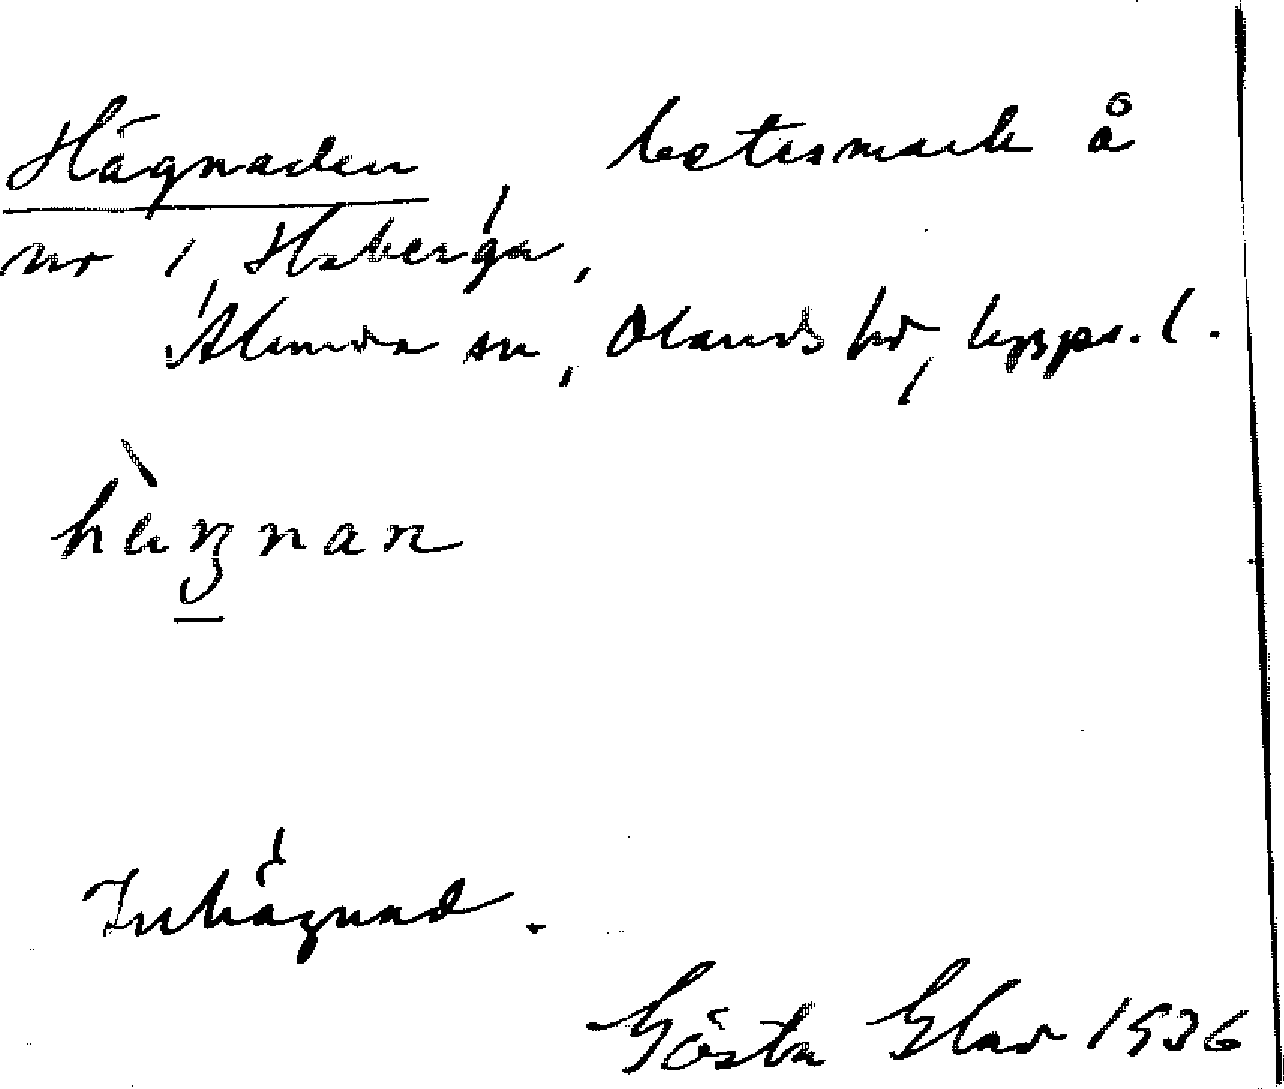 Hägnaden, betesmark å
nr 1 Haberga,
Alunda sn, Olands hd, Upps. l.
Inhägnad.
Gösta Elad 1936